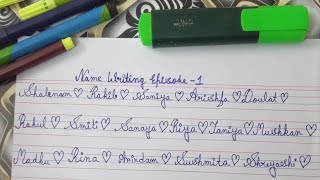 Name Writing Episode-1
Shabnam♡ Rakib♡ Saniya♡ Arishfa♡ Doulat♡
Rahul♡ Smit♡ Sanaya♡ Riya♡ Taniya♡ Mushkan♡
Madhu♡ Rina♡ Arindam♡ Sushmita♡ Shreyashi♡